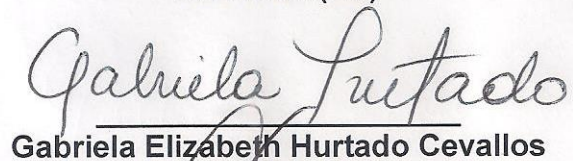 Gabriela Hurtado
Gabriela Elizabeth Hurtado Cevallos